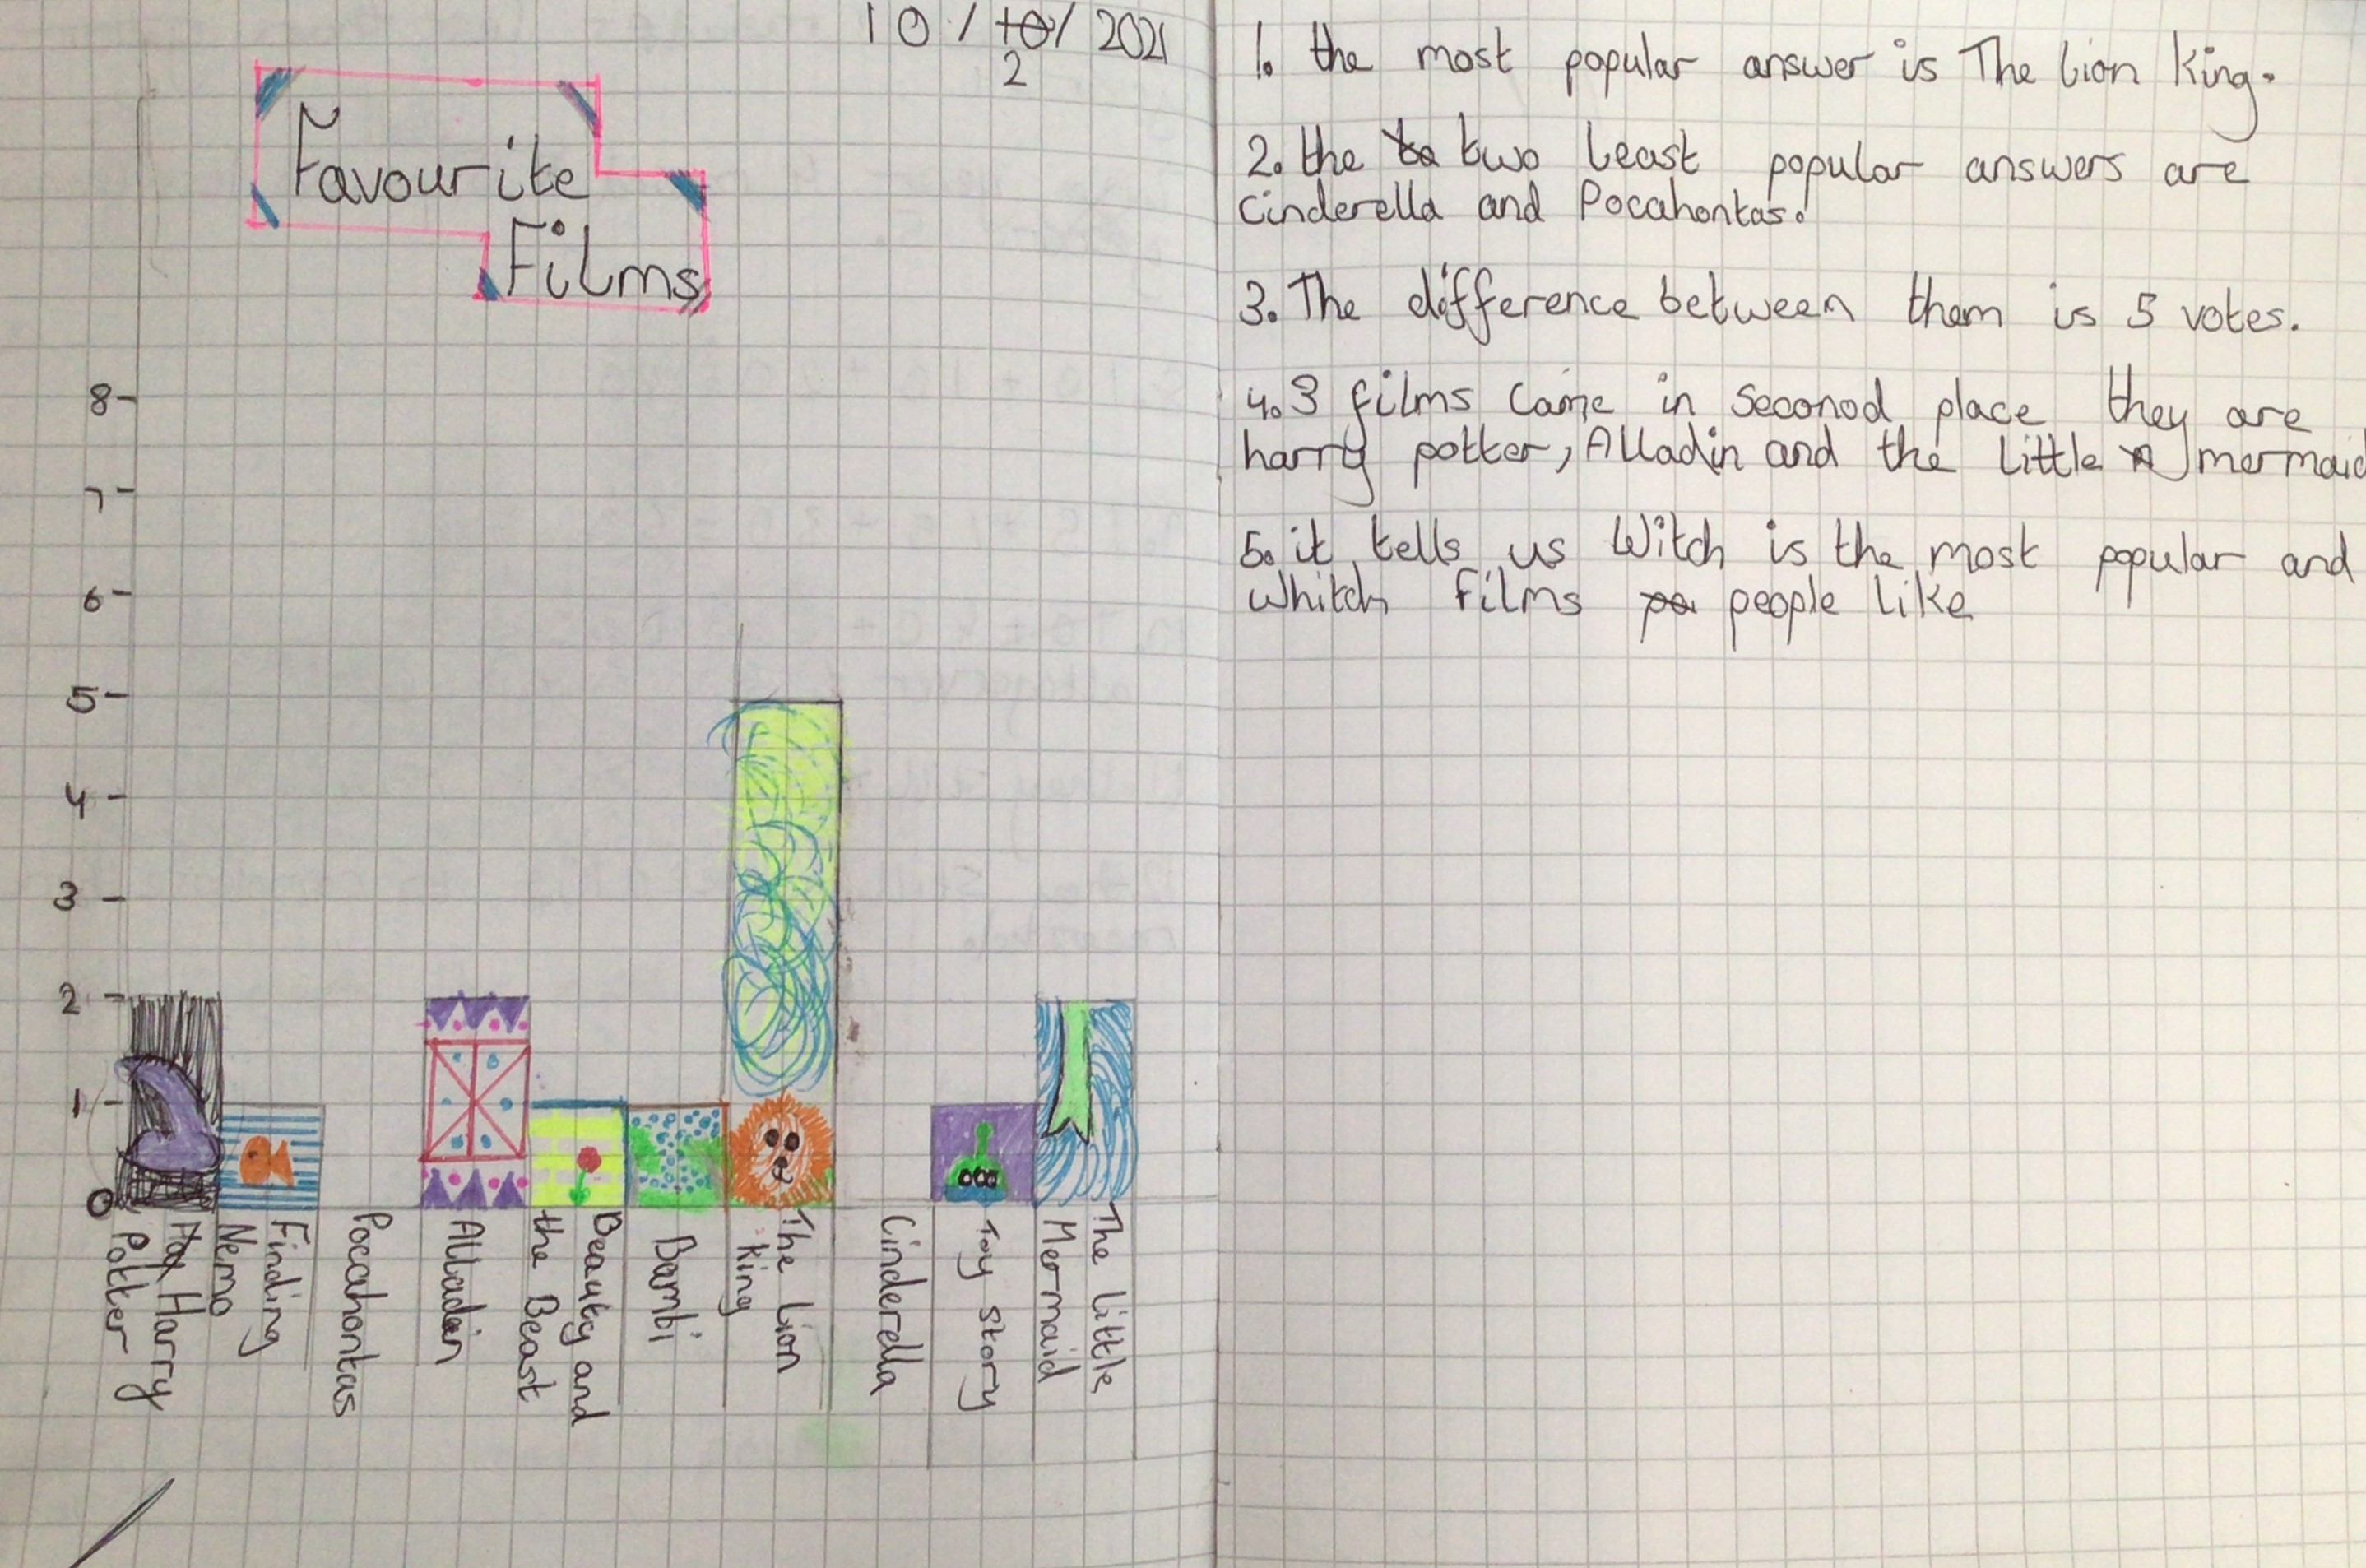 10 / 10 / 2021
2
Favourite
Films
8
7
6
5
4
3
2
1
0
Harry
Potter
Finding
Nemo
Pocahontas
Alladin
Beauty and
the Beast
Bambi
The Lion
king
Cinderella
Toy Story
The Little
Mermaid
1. the most popular answer is The Lion King.
2. the to two least popular answers are
Cinderella and Pocahontas.
3. The difference between them is 5 votes.
4. 3 films came in seconod place they are
harry potter, Alladin and the little mermaid
5. it tells us Witch is the most popular and
Whitch films people like